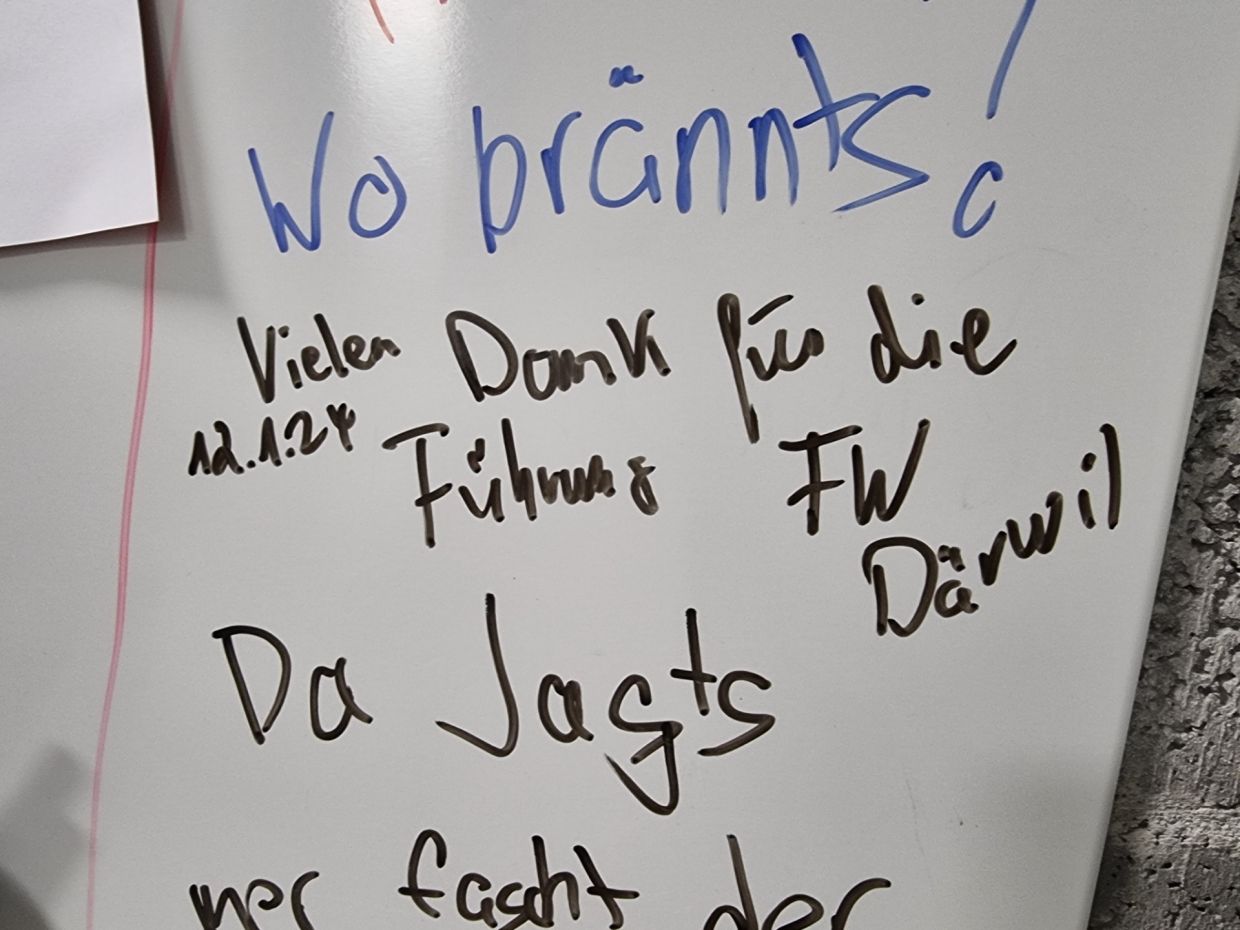 Wo brännts!
Vielen Dank für die
12.1.24 Führung FW
Därwil
Da Jagts
mer fascht der